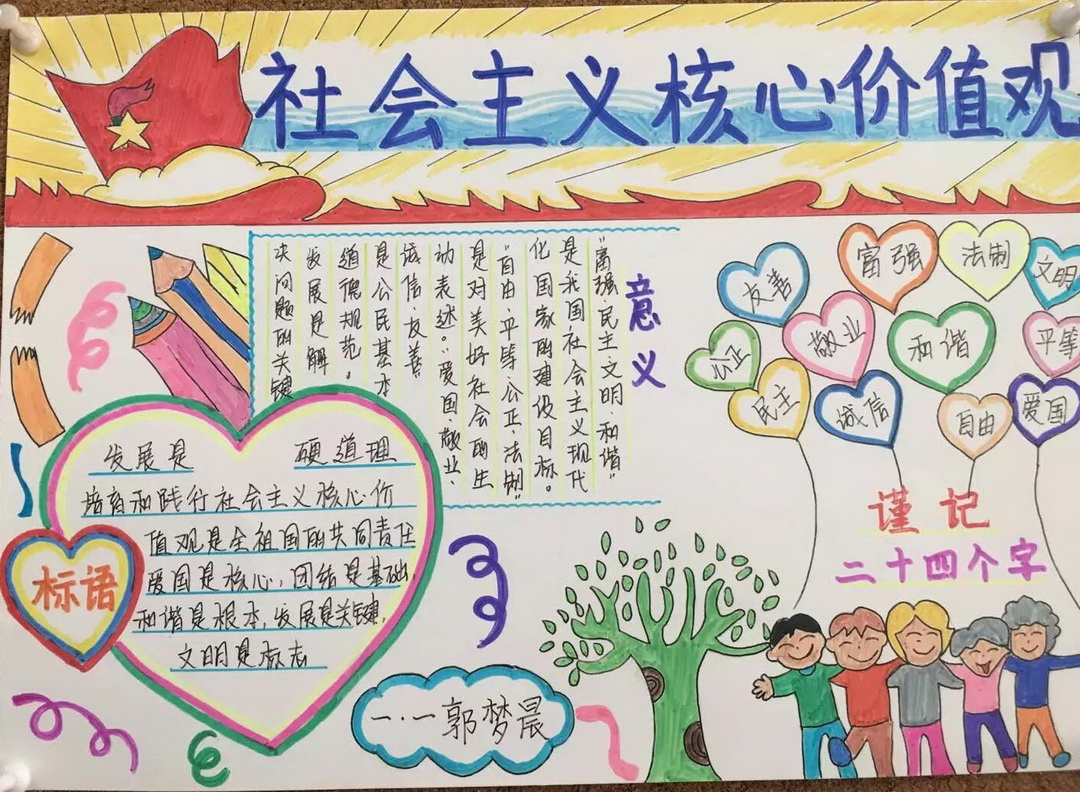 社会主义核心价值观
意义
“富强·民主·文明·和谐”
是我国社会主义现代
化国家的建设目标。
“自由·平等·公正·法制”
是对美好社会的生
动表述。“爱国·敬业·
诚信·友善”
是公民基本
道德规范。
发展是解
决问题的关键
友善
富强
法制
文明
公正
敬业
和谐
平等
民主
诚信
自由
爱国
发展是 硬道理
培育和践行社会主义核心价
值观是全祖国的共同责任
爱国是核心，团结是基础，
和谐是根本，发展是关键，
文明是标志
标语
谨记
二十四个字
一·一郭梦晨